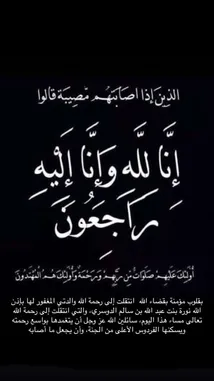 الذين إذا أصابتهم مصيبة قالوا
إِنَّا لِلَّهِ وَإِنَّا إِلَيْهِ
رَاجِعُونَ
أُولَئِكَ عَلَيْهِمْ صَلَوَاتٌ مِنْ رَبِّهِمْ وَرَحْمَةٌ وَأُولَئِكَ هُمُ الْمُهْتَدُونَ
بقلوب مؤمنة بقضاء الله انتقلت إلى رحمة الله والدتي المغفور لها بإذن
الله نورة بنت عبد الله بن سالم الدوسري، والتي انتقلت إلى رحمة الله
تعالى مساء هذا اليوم، سائلين الله عز وجل أن يتغمدها بواسع رحمته
ويسكنها الفردوس الأعلى من الجنة، وأن يجعل ما أصابه